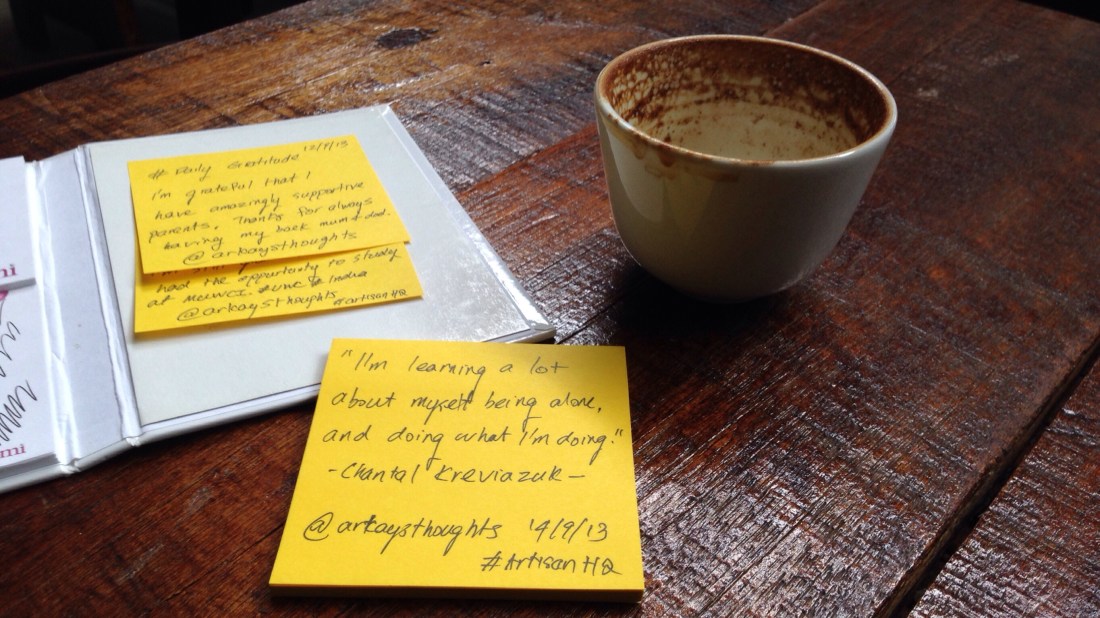 # Daily Gratitude 12/9/13
I'm grateful that I
have amazingly supportive
parents. Thanks for always
having my back mum & dad.
@arkaysthoughts
had the opportunity to study
at
India
@arkaysthoughts #artisanHQ
"I'm learning a lot
about myself being alone,
and doing what I'm doing."
- Chantal Kreviazuk -
@arkaysthoughts 14/9/13
#ArtisanHQ
mi
mi